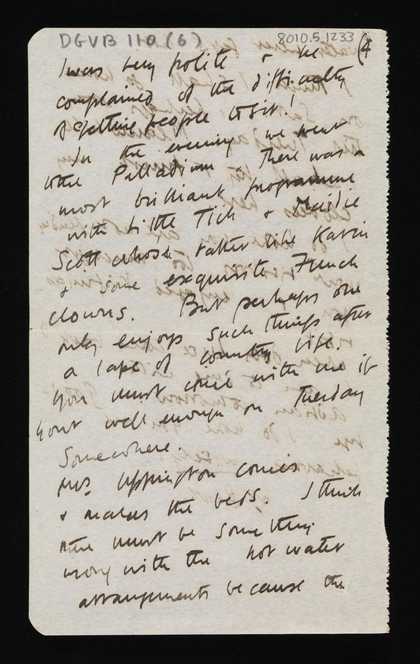 DGVB 110 (6)
8010.5.1233
(4
I was very polite & he
complained of the difficulty
of getting people to sit!
In the evening we went
to the Palladium. There was a
most brilliant programme
with Little Tich & Maidie
Scott whose rather like Karin
& some exquisite French
clowns. But perhaps one
only enjoys such things after
a lapse of country life.
You must come with me if
your well enough on Tuesday
somewhere.
Mrs Uppington comes
& makes the beds. I think
there must be something
wrong with the hot water
arrangements because the